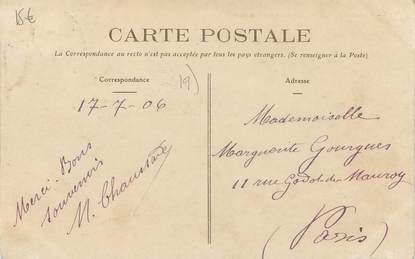 15€
CARTE POSTALE
La Correspondance au recto n'est pas acceptée par tous les pays étrangers. (Se renseigner à la Poste)
Correspondance
19)
17-7-06
Merci. Bons
souvenirs
M. Chaussade
Adresse
Mademoiselle
Marguerite Gourgues
11 rue Godot-de-Mauroy
(Paris)